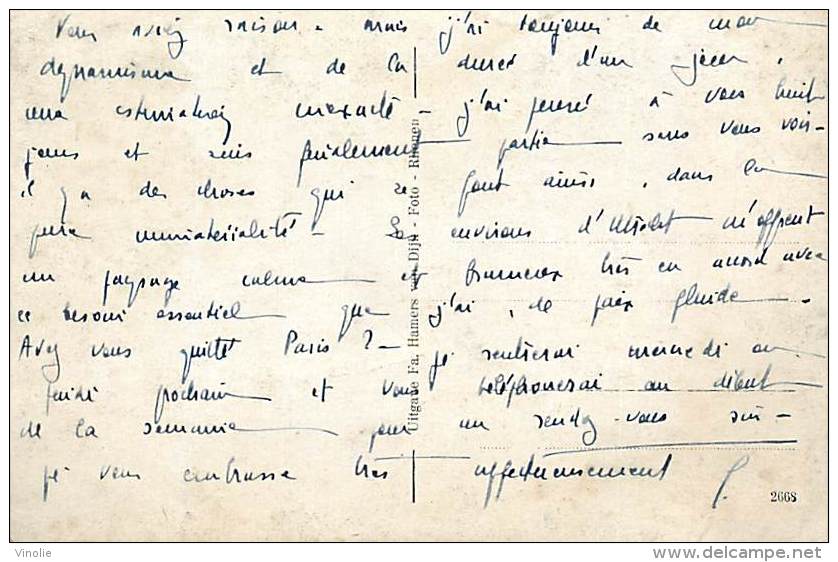 Vous aviez raison - mais j'ai toujours de mon
dynamisme et de la durée d'un jour,
une estimation inexacte - j'ai pensé à vous huit
jours et suis finalement partie sans vous voir -
il y a des choses qui se font ainsi, dans la
pure immatérialité - Les environs d'Utrecht m'offrent
un paysage calme et brumeux très en accord avec
ce besoin essentiel que j'ai, de paix fluide.
Avez vous quitté Paris ? - je rentrerai mercredi ou
jeudi prochain et vous téléphonerai au début
de la semaine pour un rendez-vous sûr -
je vous embrasse très affectueusement
Uitgave Fa. Hamers van Dijk - Foto - Rhenen
2668
Vinolie
www.delcampe.net